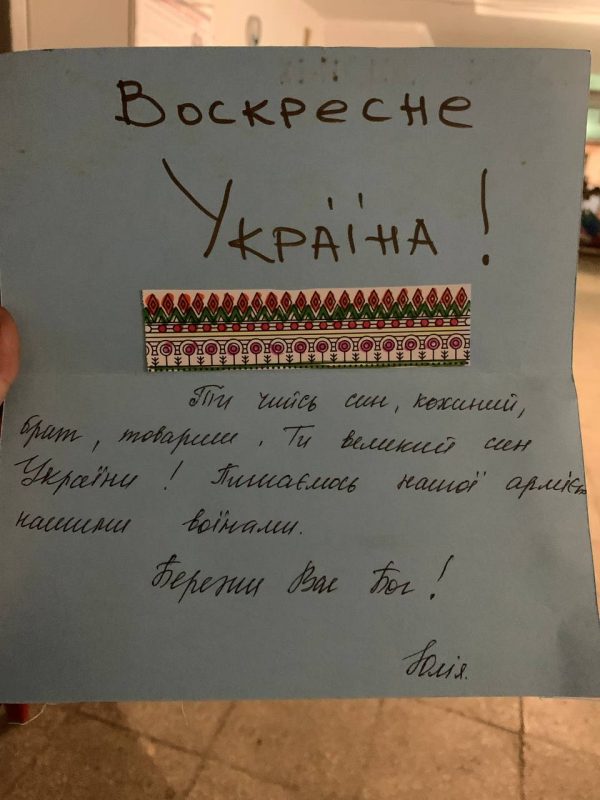 Воскресне
Україна!
Ти чийсь син, коханий,
брат, товариш. Ти великий син
України! Пишаємось нашої армією
нашими воїнами.
Бережи Вас Бог!
Юлія.